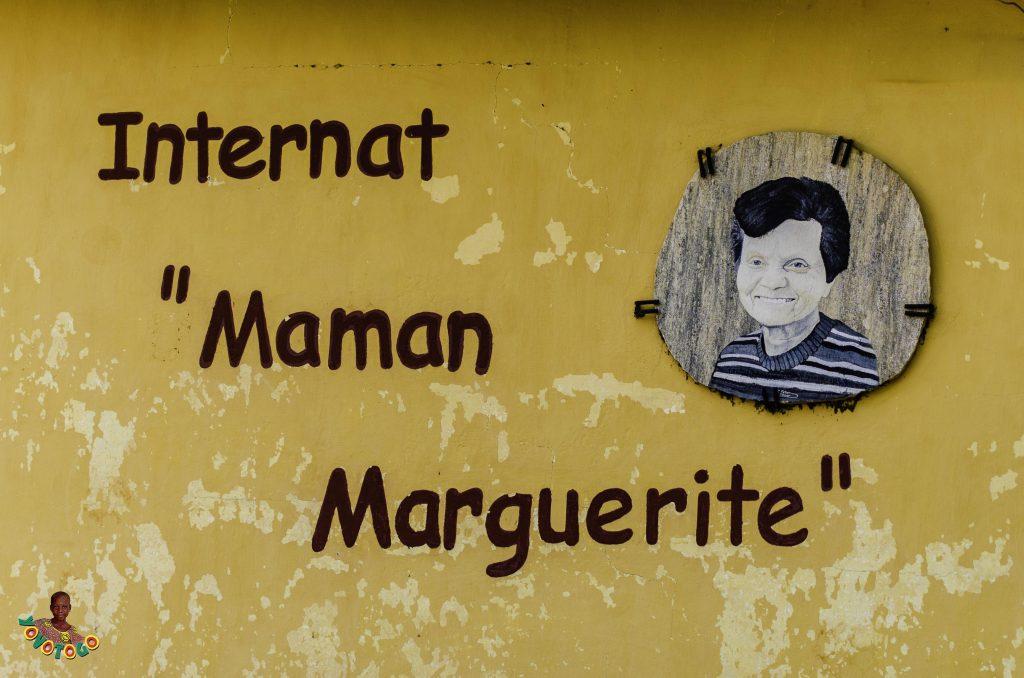 Internat
"Maman
Marguerite"
YOVOTOGO